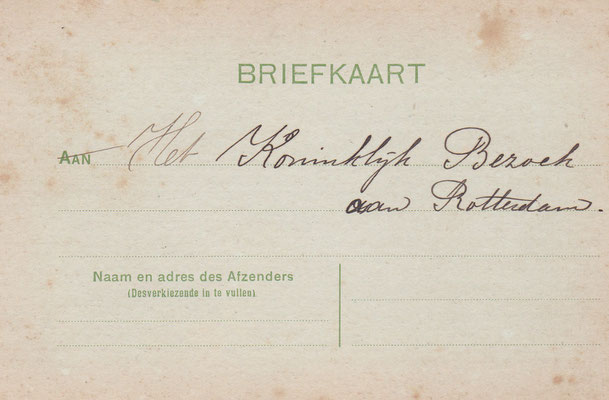 BRIEFKAART
AAN Het Koninklijk Bezoek
aan Rotterdam.
Naam en adres des Afzenders
(Desverkiezende in te vullen).